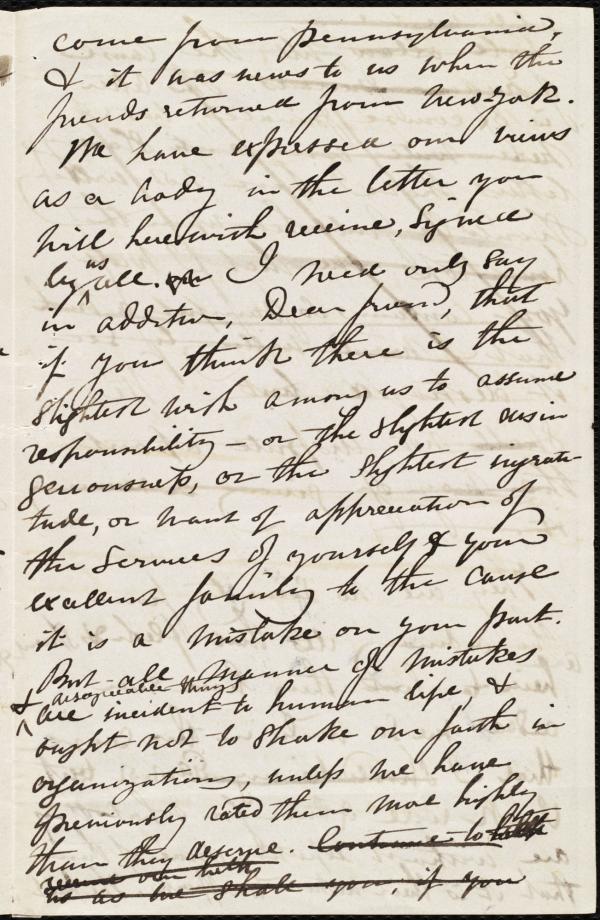 come from Pennsylvania,
& it was news to us when the
friends returned from New-York.
We have expressed our views
as a body in the letter you
will herewith receive, signed
by us all. I need only say
in addition, Dear friend, that
if you think there is the
slightest wish among us to assume
responsibility – or the slightest disin
geniousness, or the slightest ingrati-
tude, or want of appreciation of
the services of yourself & your
excellent family to the cause
it is a mistake on your part.
But all manner of mistakes
& disagreeable things
are incident to human life, &
ought not to shake our faith in
organizations, unless we have
previously rated them more highly
than they deserve. Continue to help
us as we shall you, if you